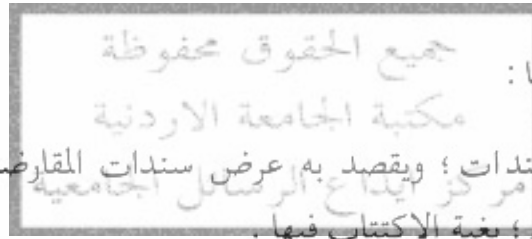 جميع الحقوق محفوظة
ا :
مكتبة الجامعة الاردنية
ندات ؛ ويقصد به عرض سندات المقارض
مركز ايداع الرسائل الجامعية
؛ بغية الاكتتاب فيها .